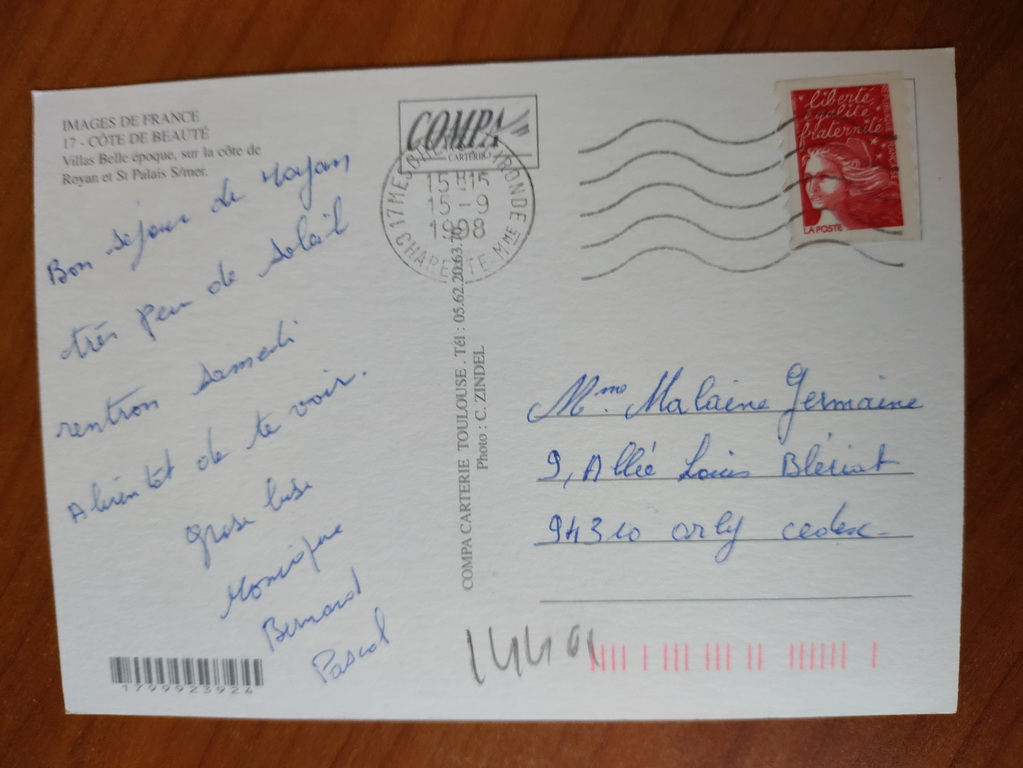 IMAGES DE FRANCE
17 - CÔTE DE BEAUTÉ
Villas Belle époque, sur la côte de
Royan et St Palais S/mer.
Bon séjour de Royan
très peu de Soleil
rentron Samedi
A bientôt de te voir.
grose bise
Monique
Bernard
Pascal
1799923924
COMPA
CARTERIE
15H15
15-9
1998
CHARENTE Mme
COMPA CARTERIE TOULOUSE . Tél : 05.62.20.63.
Photo : C. ZINDEL
liberté
égalité
fraternité
LA POSTE
Mme Malaine Germaine
9, Allée Louis Blériot
94310 orly cedex